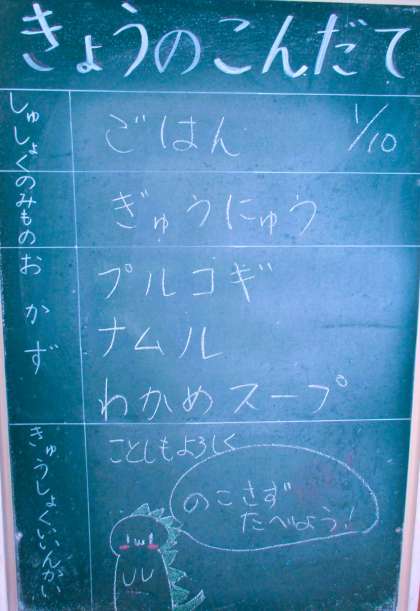 きょうのこんだて
しゅしょく
ごはん
1/10
のみもの
ぎゅうにゅう
おかず
プルコギ
ナムル
わかめスープ
きゅうしょくいいんかい
ことしもよろしく
のこさず
たべよう!